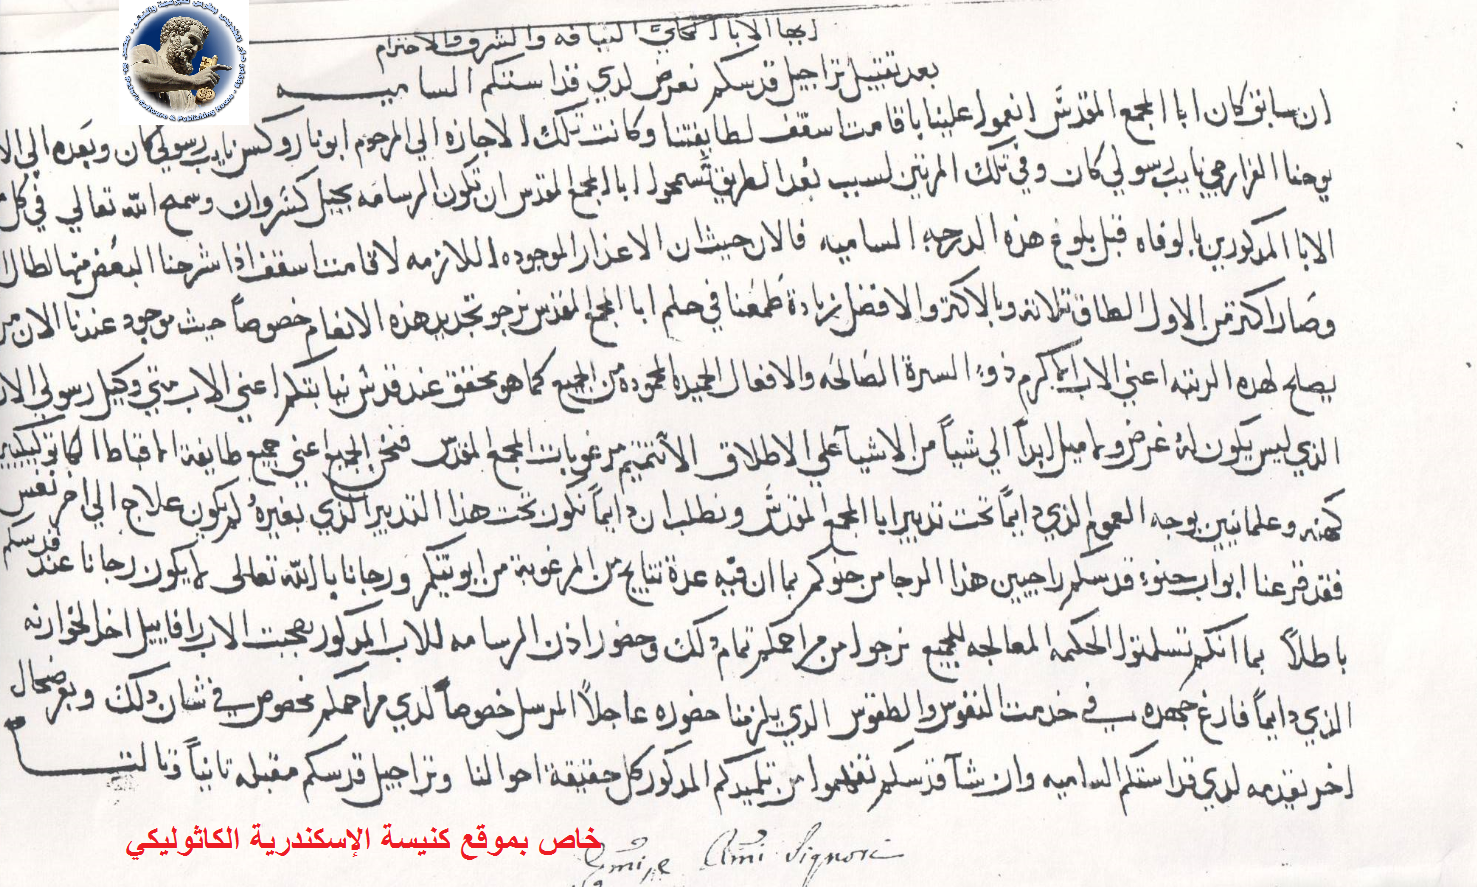 ايها الابا الكلي النيافه والشرف والاحترام
بعد تقبيل تراجيل قدسكم نعرض لدي قداستكم الساميه
ان سابق كان ابا المجمع المقدس انعموا علينا باقامت اسقف لطايفتنا وكانت تلك الاجازه الي المرحوم ابونا روكس نايب رسولي كان وبعده الي الا
يوحنا الفرارجي نايب رسولي كان وفي تلك المرتين لسبب بُعد الطريق تسمحوا ابا المجمع المقدس ان تكون الرسامه بجبل كسروان وسمح الله تعالي في كل
الابا المدكورين بالوفاه قبل بلوغ هذه الدرجه الساميه فالان حيث ان الاعذار الموجوده اللازمه لاقامت اسقف اذا شرحنا البعض منها لطال
وصار اكتر من الاول الطاق تلاته وبالاكتر والافضل زيادة طمعُنا في حلم ابا المجمع المقدس نرجو تجديد هذه الانعام خصوصاً حيث موجود عندنا الان من
يصلح لهده الرتبه اعني الاب المكرم ذو السيرة الصالحه والافعال الحميدة المحمودة من الجميع كما هو محقق عند قدس نيابتكم اعني الاب متي وكيل رسولي الان
الذي ليس يكون لهُ غرض ولا ميل ابداً الي شياً من الاشيا علي الاطلاق الا تتميم مرغوبات المجمع المقدس فنحن الجميع اعني جميع طايفة الاقباط الكاتوليكيين
كهنه وعلمانيين بوجه العموم الذي دايماً تحت تدبير ابا المجمع المقدس ونطلب ان دايماً نكون تحت هذا التدبير الذي بغيرهُ لم يكون علاج الي اخر نفس
فقد قرعنا ابواب حنو قدسكم راجيين هذا الرجا من حنوكم بما ان فيه عدة نتايج من المرغوبة من ابوتيكم ورجانا بالله تعالى لا يكون رجانا عند قدسكم
باطلاً بما انكم تسلمتوا الحكمه المعالجه للجميع نرجوا من مراحمكم تمام دلك وحضور اذن الرسامه للاب المدكور بصحبت الاب رافاييل اخد الخوارنه
الذي دايماً فارغ جهده في خدمت النفوس والطقوس الدي يلزمنا حضوره عاجلاً المرسل خصوصاً لدي مراحمكم مخصوص في شان دلك وبعرضحال
اخر نقدمه لدي قداستكم الساميه وان شآ قدسكم تفهموا من تلميدكم المدكور كل حقيقة احوالنا وتراجيل قدسكم مقبله تانياً وتالتاً
Signori
خاص بموقع كنيسة الإسكندرية الكاثوليكي